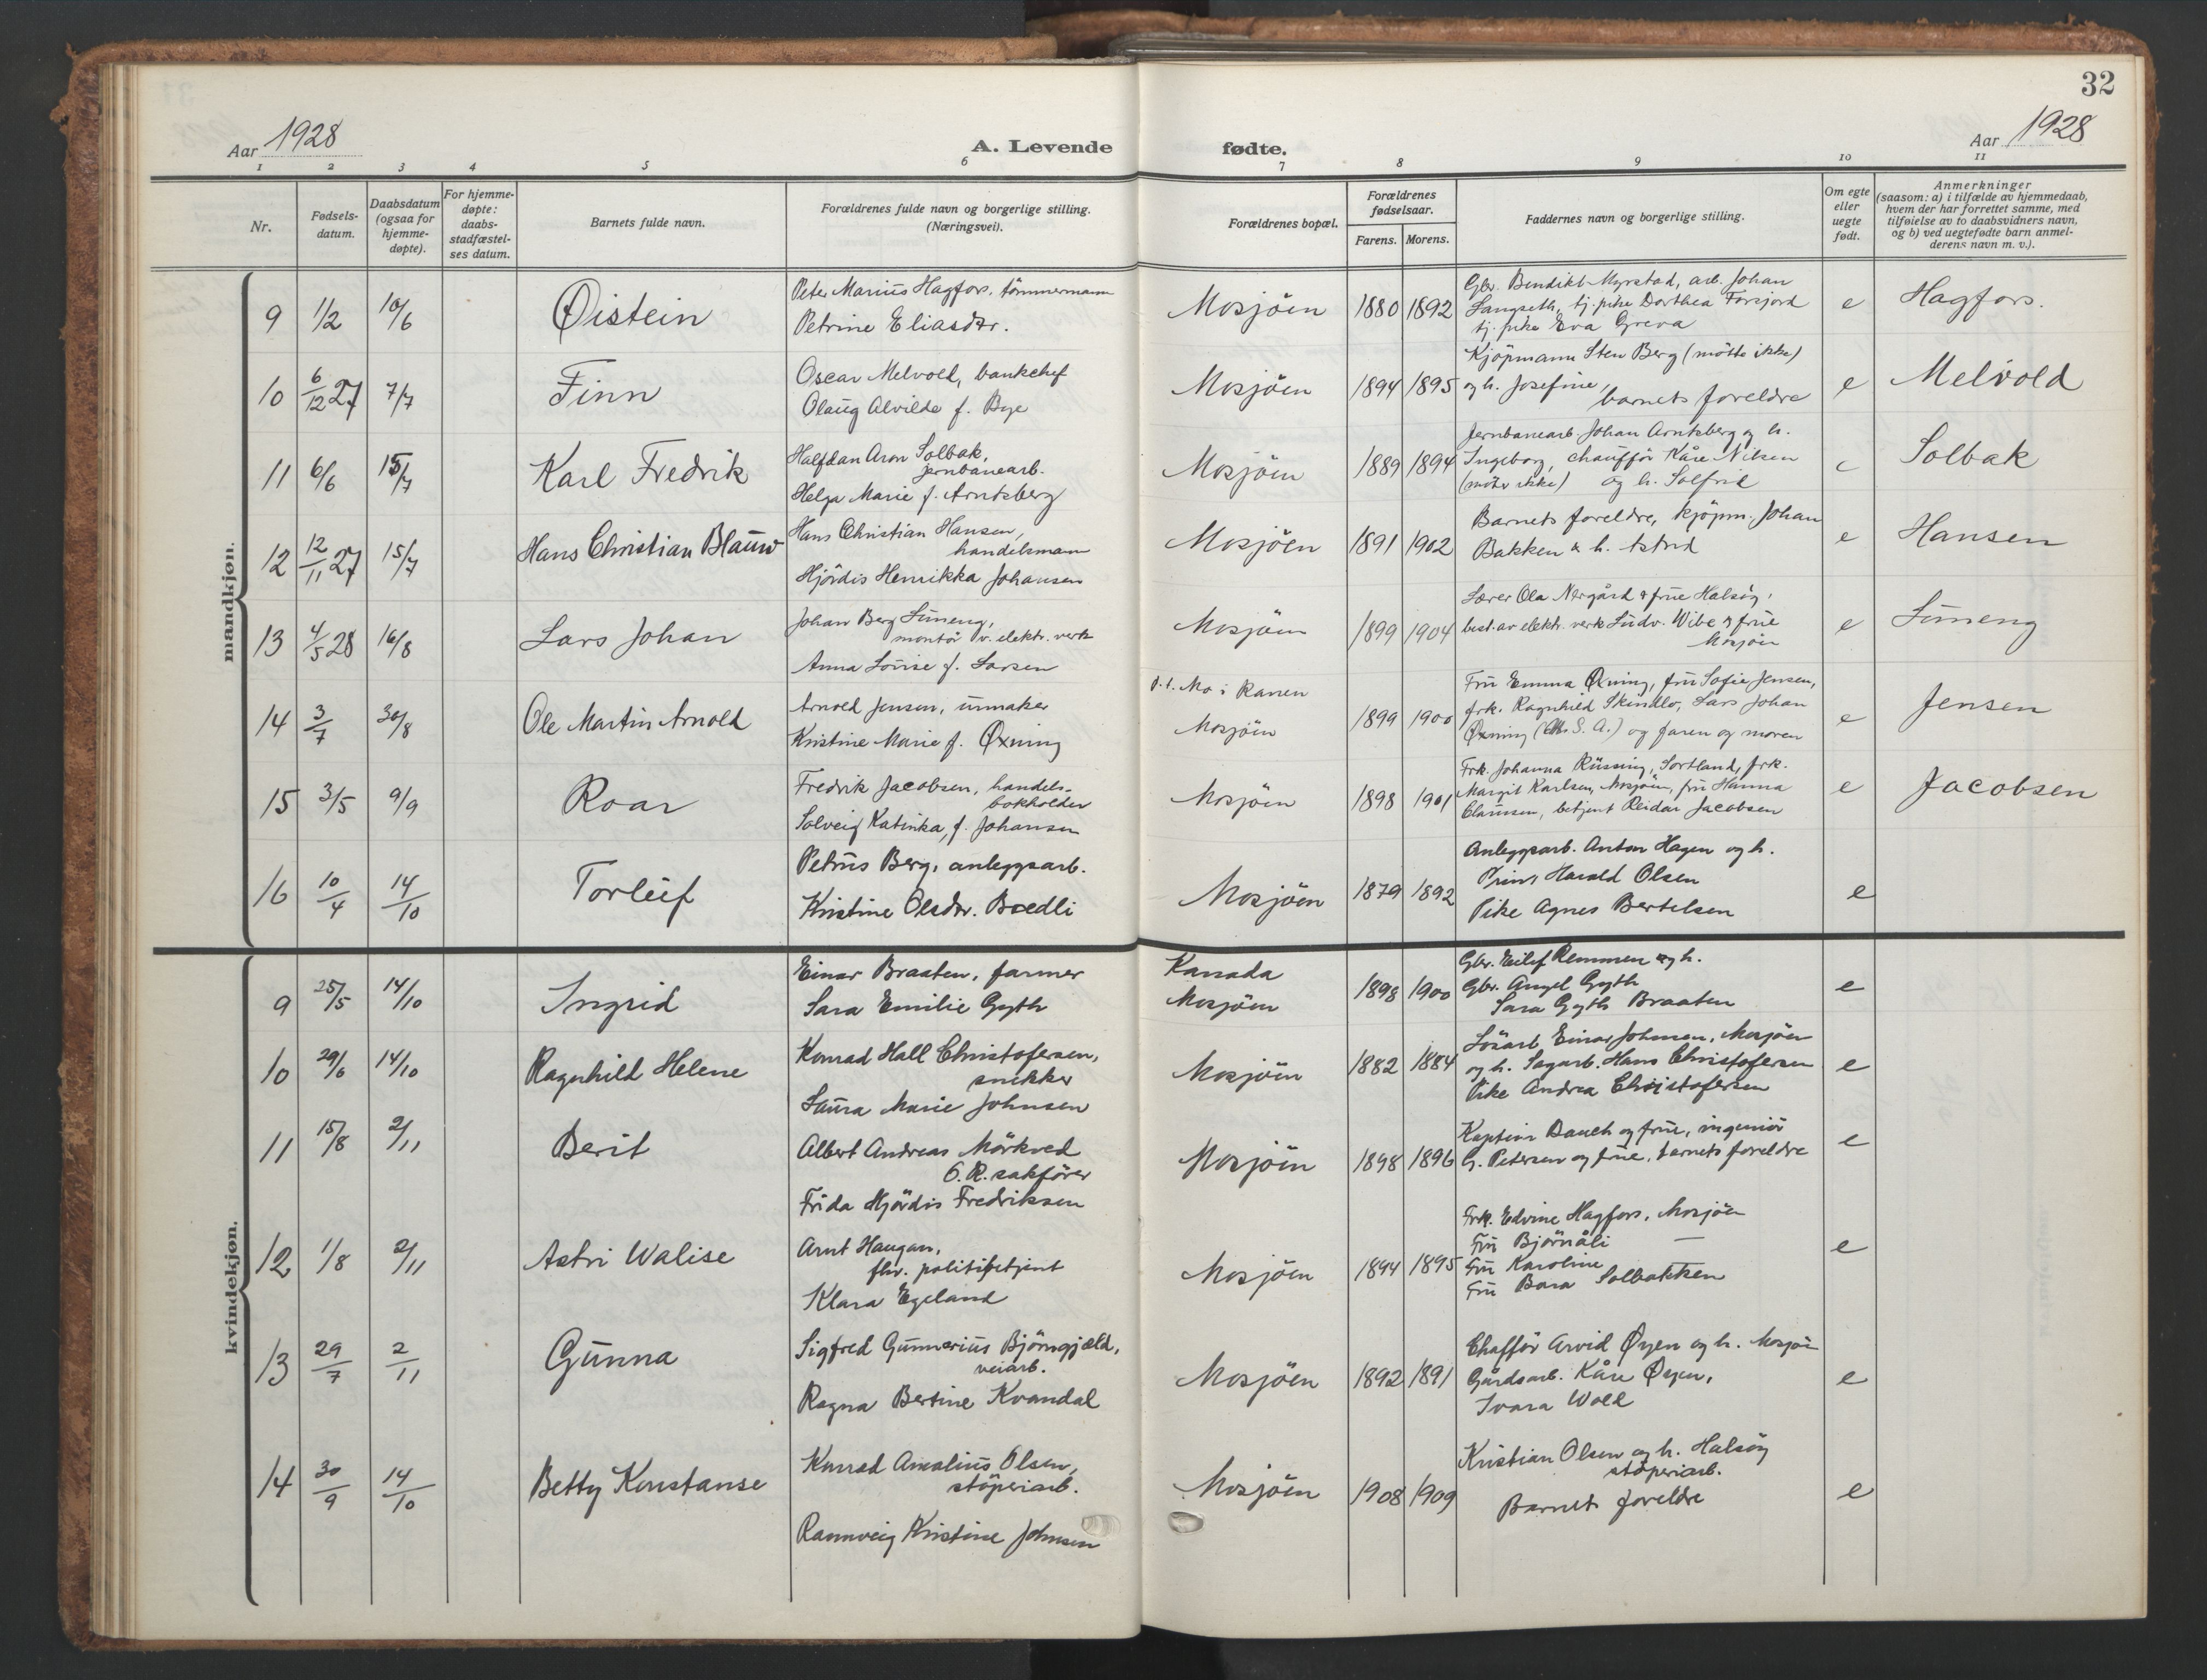 32
Aar 1928
A. Levende
fødte.
Aar 1928
1 2 3 4 5 6 7 8 9 10 11
Nr.
Fødsels-
datum.
Daabsdatum
(ogsaa for
hjemme-
døpte).
For hjemme-
døpte:
daabs-
stadfæstel-
ses datum.
Barnets fulde navn.
Forældrenes fulde navn og borgerlige stilling.
(Næringsvei).
Forældrenes bopæl.
Forældrenes
fødselsaar.
Farens. Morens.
Faddernes navn og borgerlige stilling.
Om egte
eller
uegte
født.
Anmerkninger
(saasom: a) i tilfælde av hjemmedaab,
hvem der har forrettet samme, med
tilføielse av to daabsvidners navn,
og b) ved uegtefødte barn anmel-
derens navn m. v.).
mandkjøn.
9 1/2 10/6 Øistein
Peter Marius Hagfors, tömmermann
Petrine Eliasdtr.
Mosjöen 1880 1892
Gbr. Bendikt Myrstad, arb. Johan
Langseth, tj. pike Dorthea Forsjord
tj. pike Eva Greva
e Hagfors.
10 6/12 27 7/7 Finn
Oscar Melvold, bankchef
Olaug Alvilde f. Bye
Mosjöen 1894 1895
Kjöpmann Sten Berg (mötte ikke)
og h. Josefine,
barnets foreldre
e Melvold
11 6/6 15/7 Karl Fredrik
Halfdan Aron Solbak,
jernbanearb.
Helga Marie f. Arntsberg
Mosjöen 1889 1894
Jernbanearb. Johan Arntsberg og h.
Ingeborg, chaufför Kåre Nilsen
(möter ikke) og h. Solfrid
e Solbak
12 12/11 27 15/7 Hans Christian Blauw
Hans Christian Hansen,
handelsmann
Hjördis Henrikka Johansen
Mosjöen 1891 1902
Barnets foreldre, kjöpm. Johan
Bakken & h. Astrid
e Hansen
13 4/5 28 16/8 Lars Johan
Johan Berg Limeng,
montör v. elektr. verk
Anna Louise f. Larsen
Mosjöen 1899 1904
Lærer Ola Nergård & frue Halsöy,
best. av elektr. verk Ludv. Wibe & frue
Mosjöen
e Limeng
14 3/7 30/8 Ole Martin Arnold
Arnold Jensen, urmaker
Kristine Marie f. Øxning
p.t. Mo i Ranen
Mosjöen 1899 1900
Fru Emma Øxning, fru Sofie Jensen,
frk. Ragnhild Skindlo, Lars Johan
Øxning (U.S.A.) og faren og moren
e Jensen
15 3/5 9/9 Roar
Fredrik Jacobsen, handels-
bokholder
Solveig Katinka, f. Johansen
Mosjöen 1898 1901
Frk. Johanna Rüssing, Sortland, frk.
Margit Karlsen, Mosjöen, fru Hanna
Clausen, betjent Reidar Jacobsen
e Jacobsen
16 10/4 14/10 Torleif
Petrus Berg, anleggsarb.
Kristine Olsdtr. Boedli
Mosjöen 1879 1892
Anleggsarb. Anton Hagen og h.
Prins Harald Olsen
Pike Agnes Bertelsen
e
kvindekjøn.
9 25/5 14/10 Ingrid
Einar Braaten, farmer
Sara Emilie Gyth
Kanada
Mosjöen 1898 1900
Gbr. Eilif Remmen og h.
Gbr. Angel Gyth
Sara Gyth Braaten
e
10 29/6 14/10 Ragnhild Helene
Konrad Hall Christofersen,
snekker
Laura Marie Johnsen
Mosjöen 1882 1884
Lösarb. Einar Johnsen, Mosjöen
og h. Sagarb. Hans Christofersen
Pike Andrea Christofersen
e
11 15/8 2/11 Berit
Albert Andreas Mörkved
O.R. sakförer
Frida Hjördis Fredriksen
Mosjöen 1898 1896
Kaptein Bauch og frue, ingeniör
G. Petersen og frue, barnets foreldre
e
12 1/8 2/11 Astri Walise
Arnt Haugan,
fhv. politibetjent
Klara Egeland
Mosjöen 1894 1895
Frk. Edvine Hagfors, Mosjöen
Fru Björnåli —
Fru Karoline —
Fru Bara Solbakken
e
13 29/7 2/11 Gunna
Sigfred Gunnerius Björngjæld,
veiarb.
Ragna Bertine Kvandal
Mosjöen 1892 1891
Chafför Arvid Øyen og h. Mosjöen
Gårdsarb. Kåre Øyen,
Ivara Wold
e
14 30/9 14/10 Betty Konstanse
Konrad Amalius Olsen,
stöperiarb.
Rannveig Kristine Johnsen
Mosjöen 1908 1909
Kristian Olsen og h. Halsöy
stöperiarb.
Barnets foreldre
e